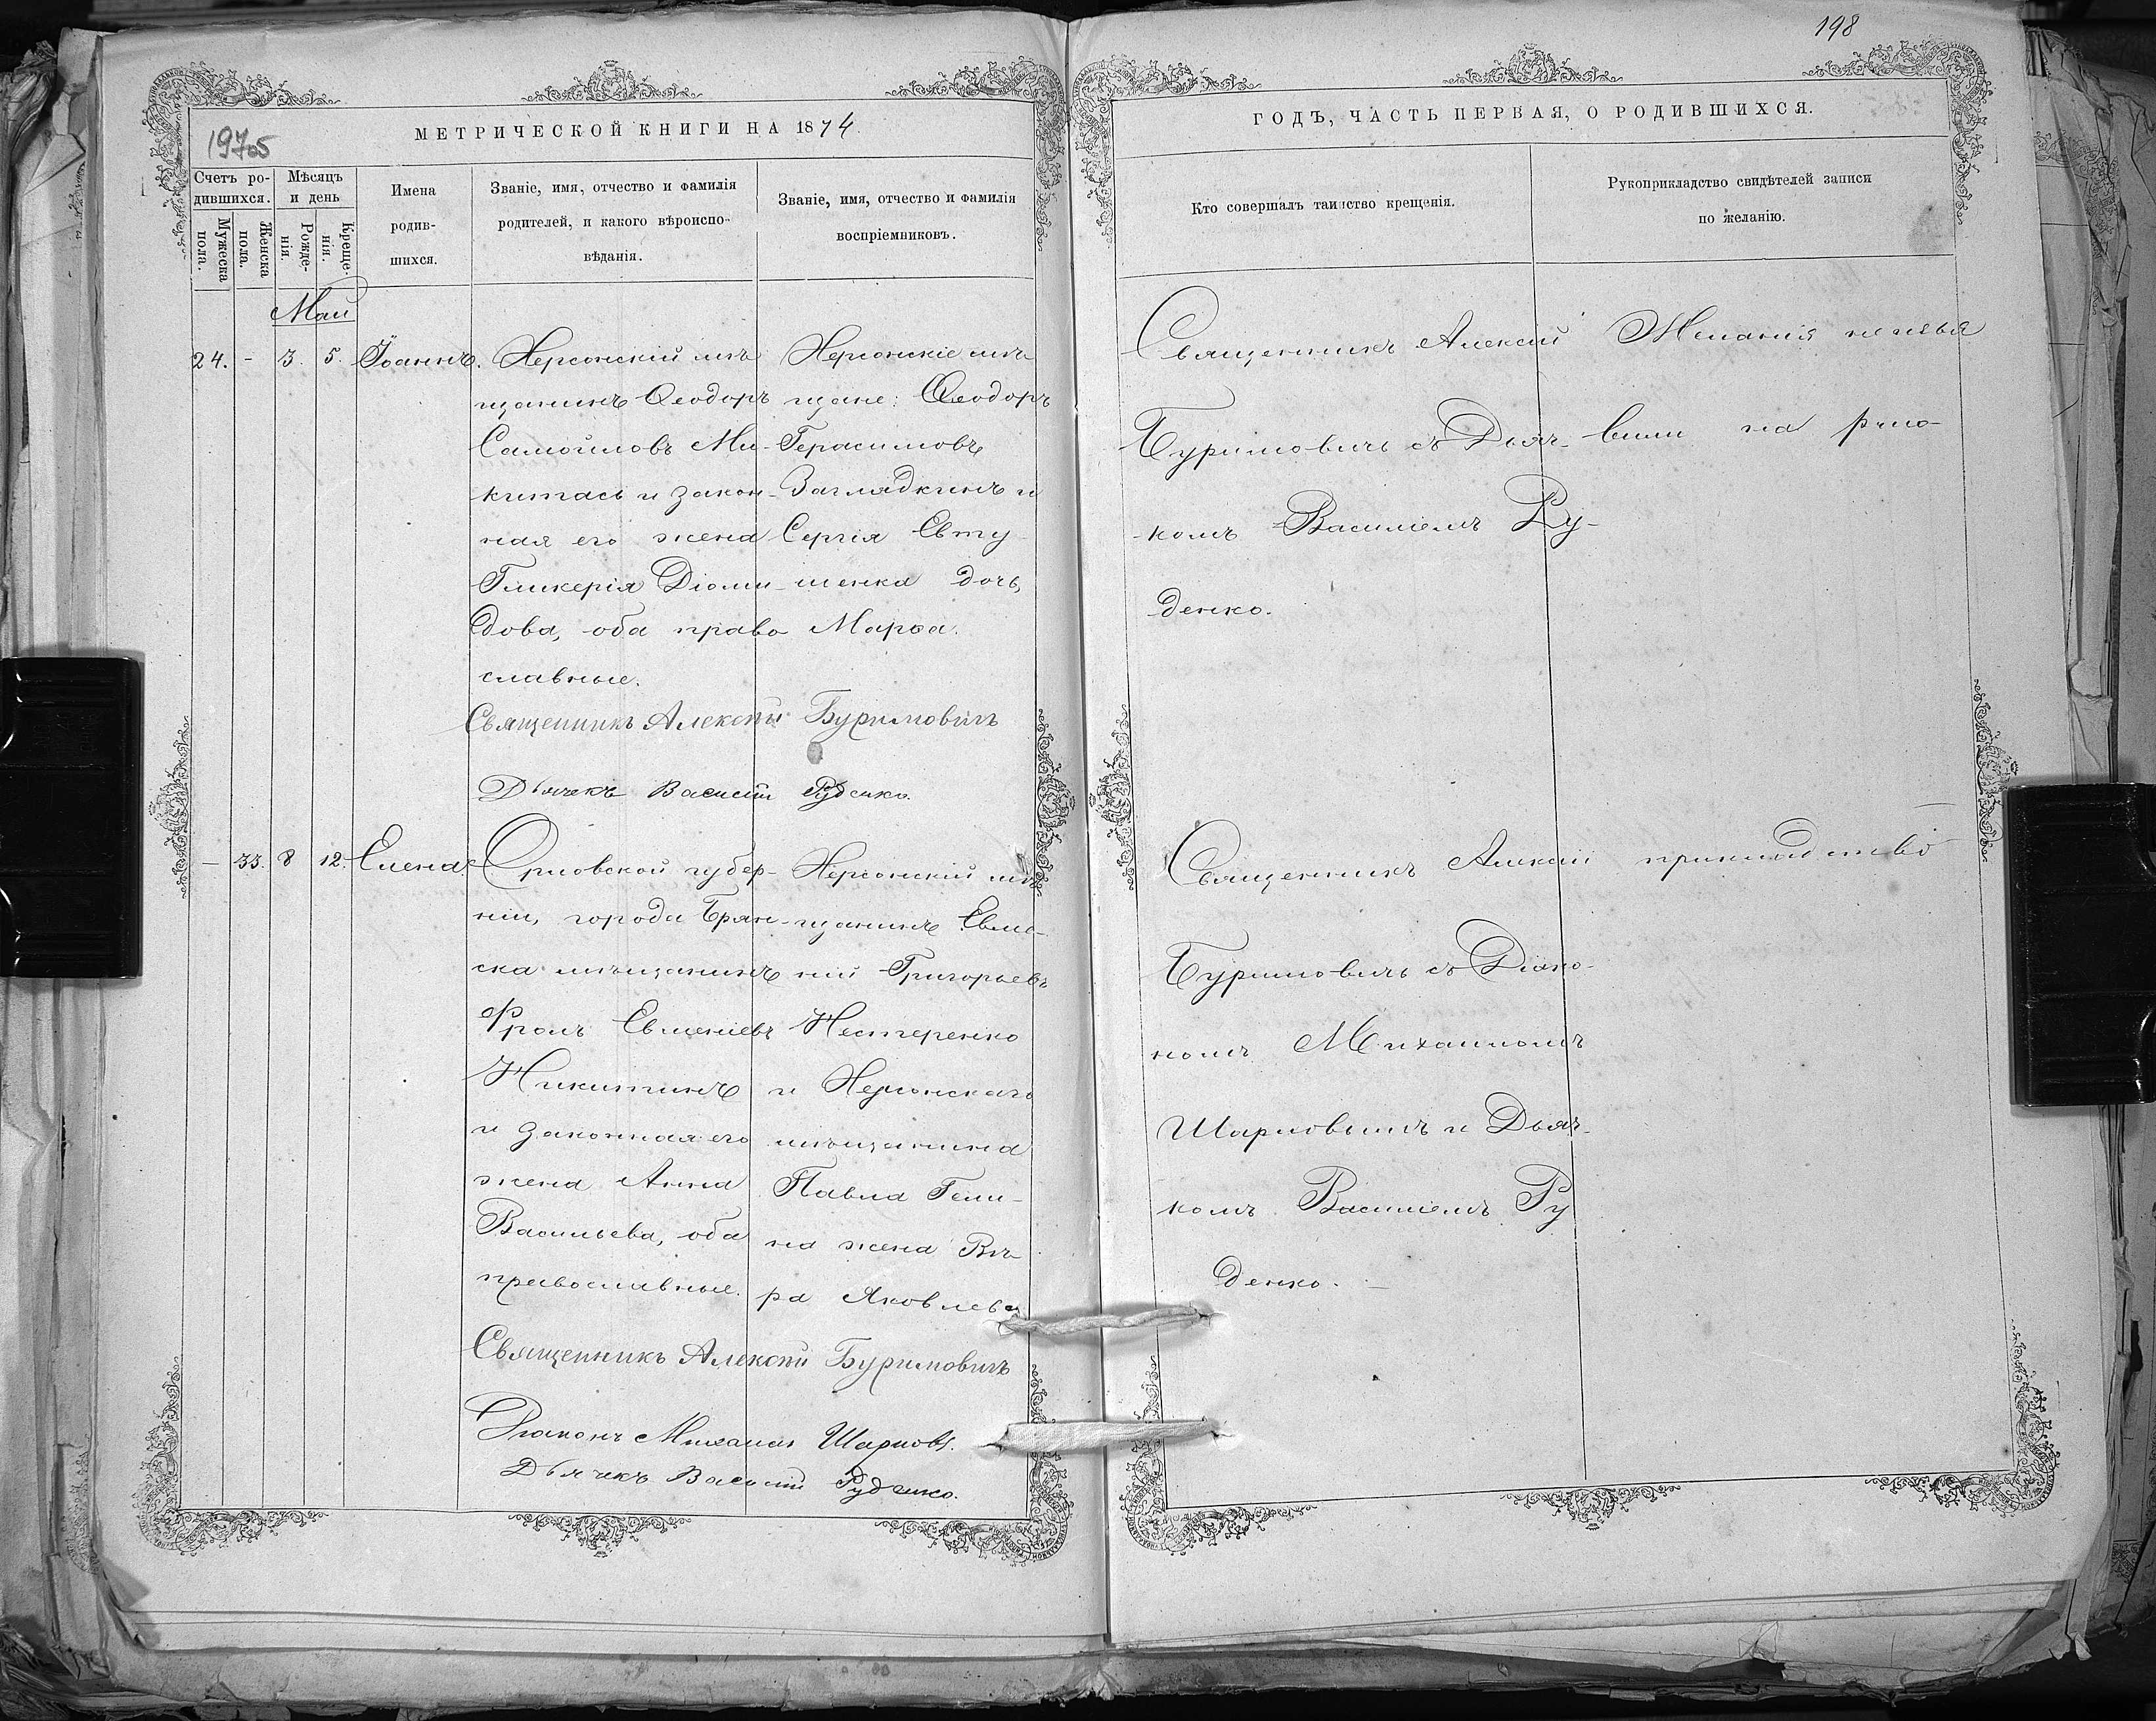 198
197об
МЕТРИЧЕСКОЙ КНИГИ НА 1874
ГОДЪ, ЧАСТЬ ПЕРВАЯ, О РОДИВШИХСЯ.
Счетъ ро-
дившихся.
Мужеска
пола.
Женска
пола.
Мѣсяцъ
и день
Рожде-
нія.
Креще-
нія.
Имена
родив-
шихся.
Званіе, имя, отчество и фамилія
родителей, и какого вѣроиспо-
вѣданія.
Званіе, имя, отчество и фамилія
воспріемниковъ.
Кто совершалъ таинство крещенія.
Рукоприкладство свидѣтелей записи
по желанію.
Май
24. - 3. 5. Іоаннъ.
Херсонскій мѣ-
щанинъ Ѳеодоръ
Самойловъ Ми-
китась и закон-
ная его жена
Гликерія Діоми-
дова, оба право
славные.
Херсонскіе мѣ-
щане: Ѳеодоръ
Герасимовъ
Загладкинъ и
Сергія Евту
шенка дочь
Марѳа.
Священникъ Алексій Буримовичъ
Дьячекъ Василій Руденко.
Священникъ Алексій
Буримовичъ съ Дьяч-
комъ Василіемъ Ру-
денко.
Желанія не изъя
вили на руко-
- 33. 8 12. Елена.
Орловской губер-
ніи, города Брян-
ска мѣщанинъ
Фролъ Евменіевъ
Никитинъ
и законная его
жена Анна
Васильева, оба
православные.
Херсонскій мѣ
щанинъ Евме-
ній Григорьевъ
Нестеренко
и Херсонскаго
мѣщанина
Павла Гели-
на жена Вѣ-
ра Яковлева
Священникъ Алексій Буримовичъ
Діаконъ Михаилъ Шарловъ.
Дьячекъ Василій Руденко.
Священникъ Алексій
Буримовичъ съ Діако-
номъ Михаиломъ
Шарловымъ и Дьяч-
комъ Василіемъ Ру
денко.
прикладство